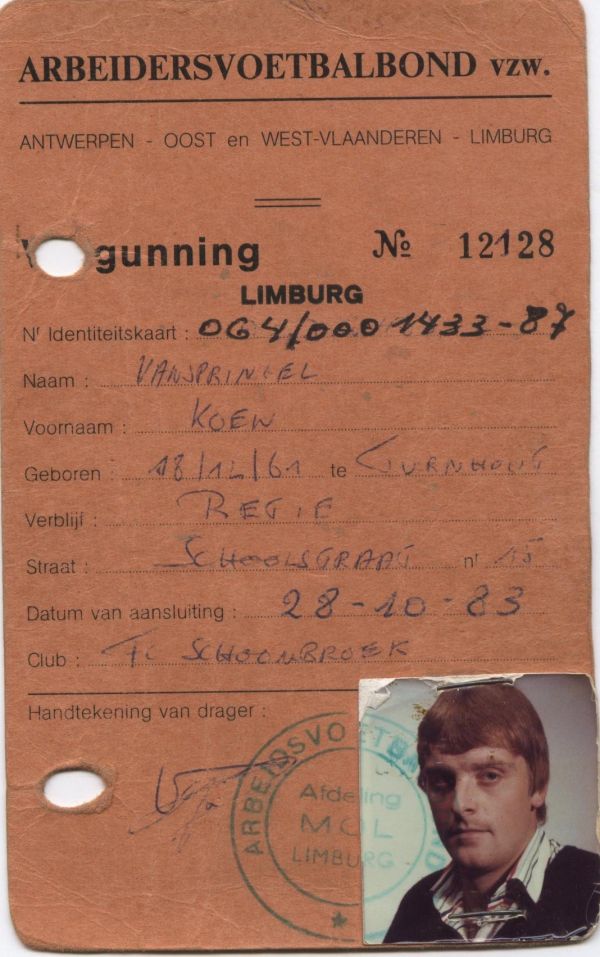 ARBEIDERSVOETBALBOND vzw.
ANTWERPEN - OOST en WEST-VLAANDEREN - LIMBURG
gunning № 12128
LIMBURG
Nr Identiteitskaart : 064/000 1433-87
Naam : VANSPRINGEL
Voornaam : KOEN
Geboren : 18/12/61 te TURNHOUT
Verblijf : RETIE
Straat : SCHOOLSTRAAT nr 15
Datum van aansluiting : 28-10-83
Club : FC SCHOONBROEK
Handtekening van drager :
ARBEIDSVOETBA ND
Afdeling
MOL
LIMBURG